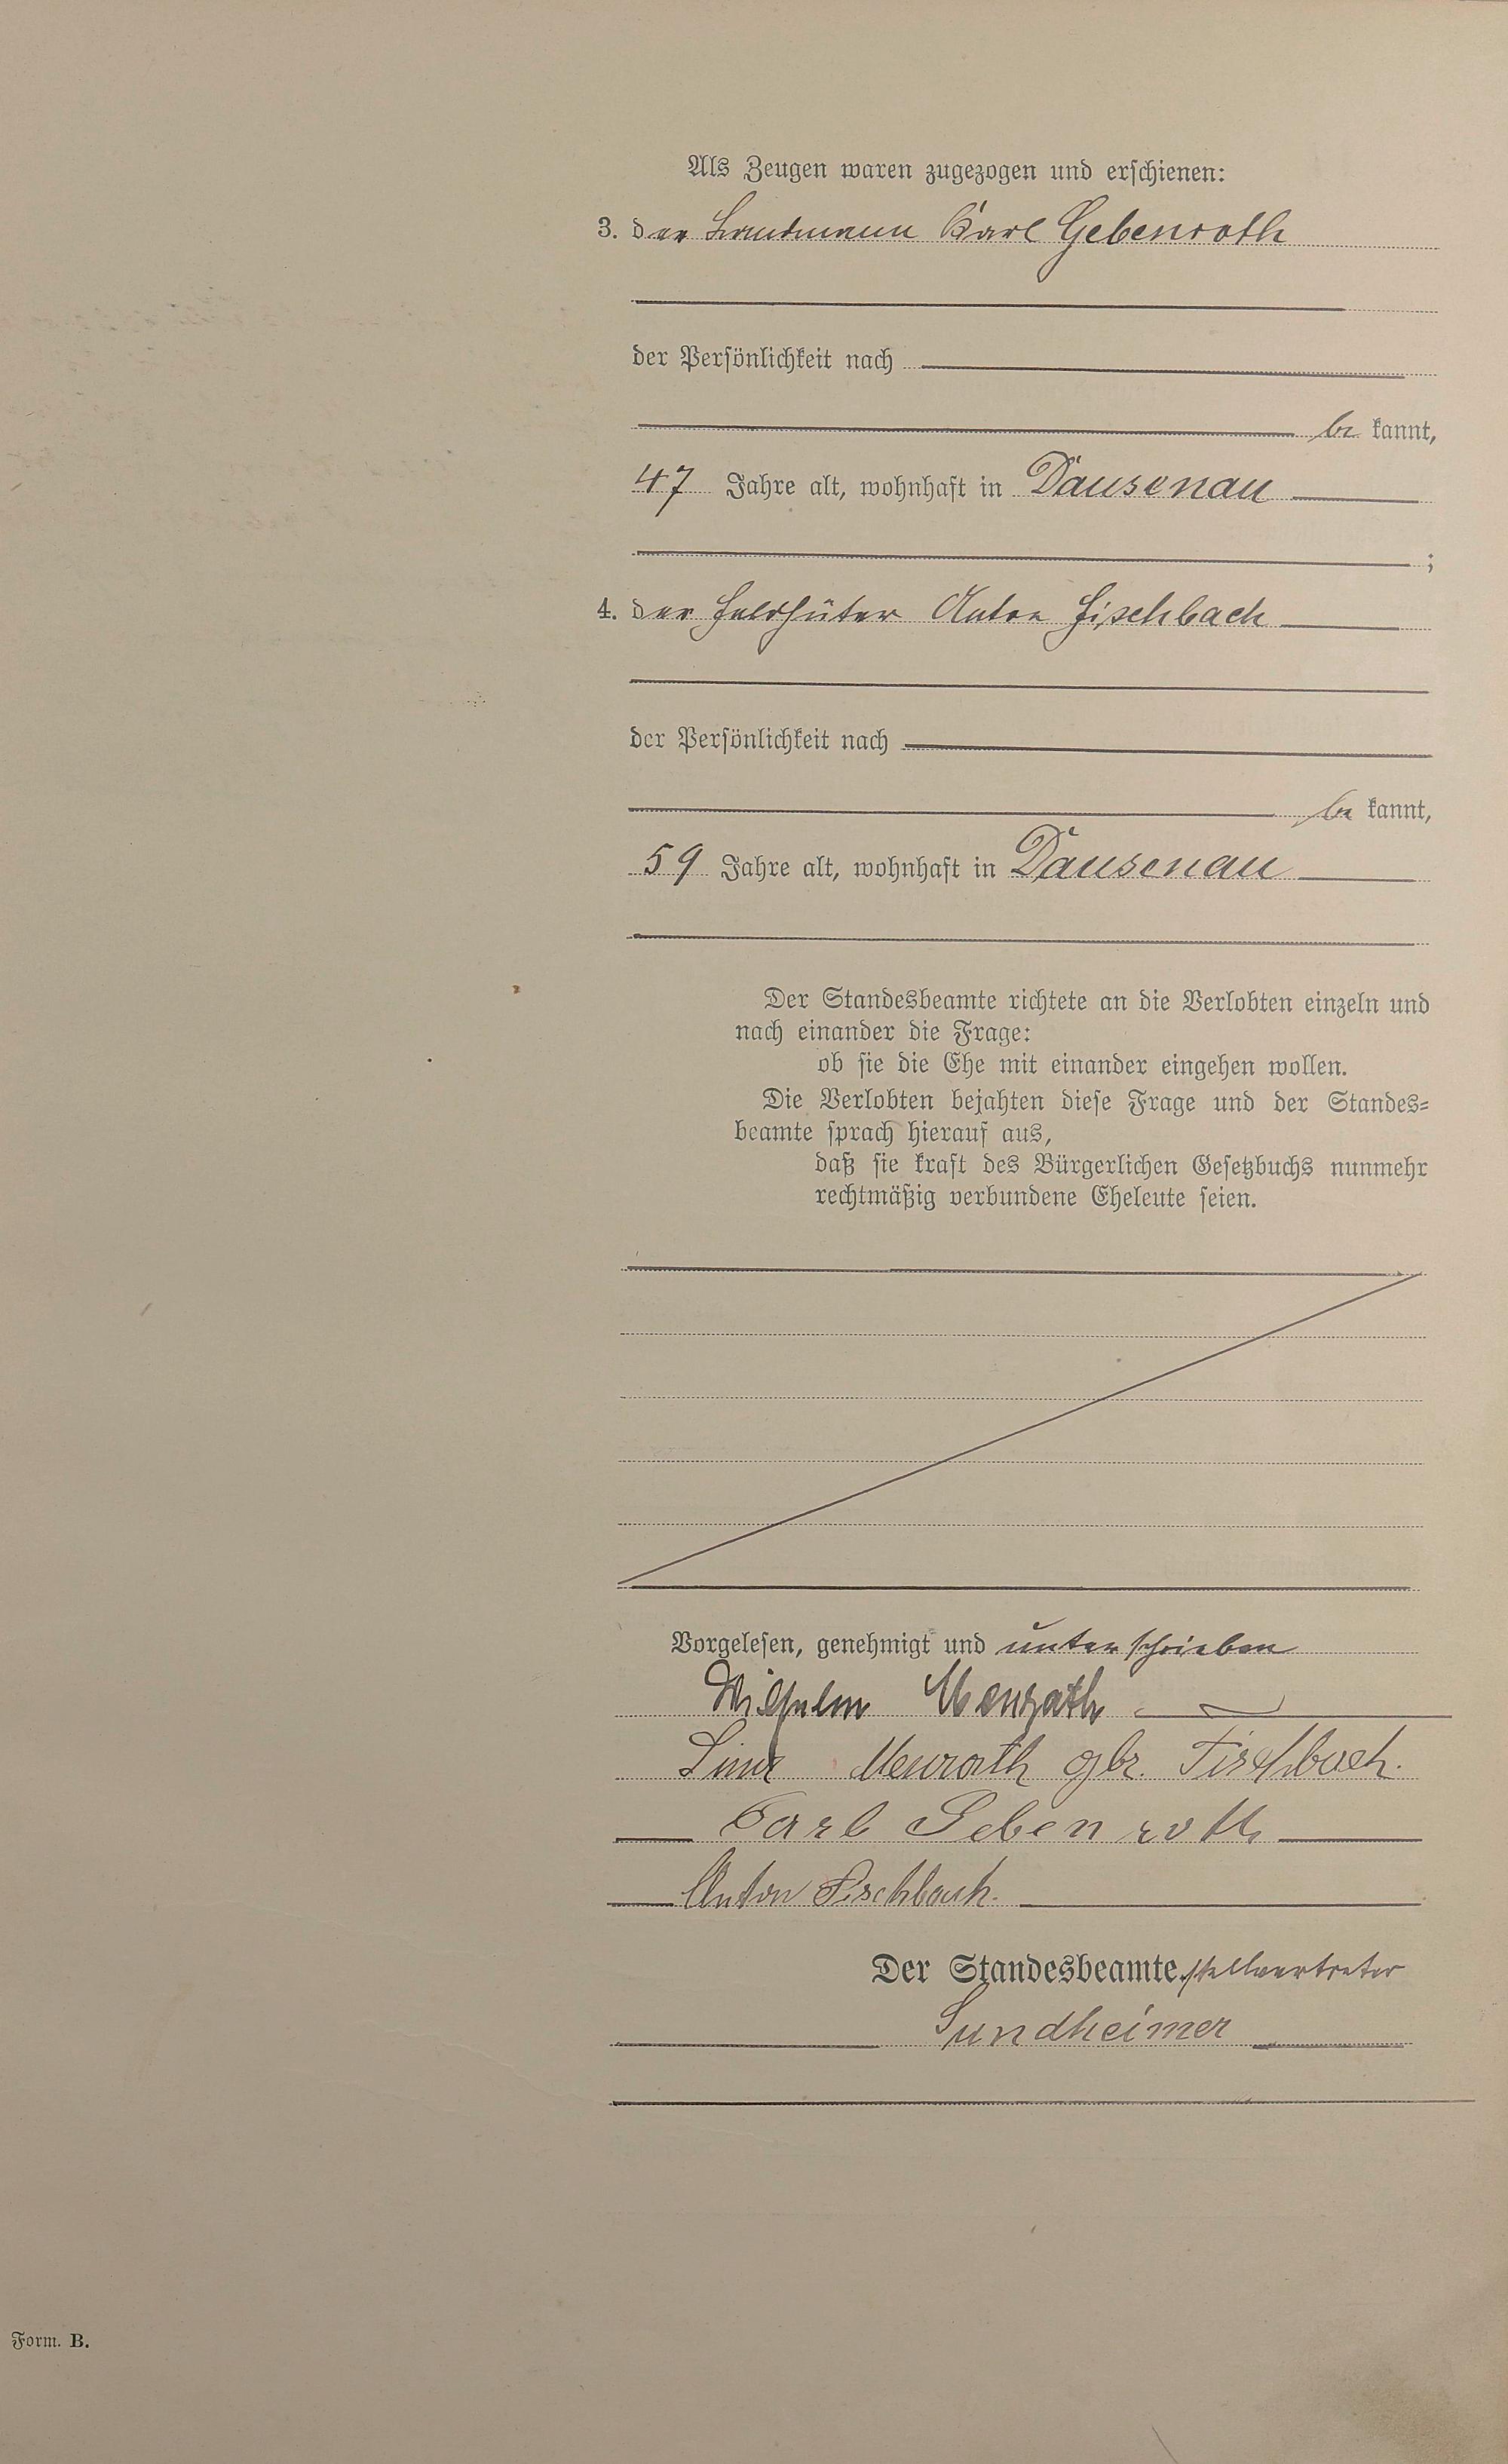 Als Zeugen waren zugezogen und erschienen:
3. der Landmann Karl Gebenroth
der Persönlichkeit nach
be kannt,
47 Jahre alt, wohnhaft in Dausenau
;
4. der Feldhüter Anton Fischbach
der Persönlichkeit nach
be kannt,
59 Jahre alt, wohnhaft in Dausenau
Der Standesbeamte richtete an die Verlobten einzeln und
nach einander die Frage:
ob sie die Ehe mit einander eingehen wollen.
Die Verlobten bejahten diese Frage und der Standes-
beamte sprach hierauf aus,
daß sie kraft des Bürgerlichen Gesetzbuchs nunmehr
rechtmäßig verbundene Eheleute seien.
Vorgelesen, genehmigt und unterschrieben
Wilhelm Menrath
Lina Menrath gbr. Fischbach.
Carl Gebenroth
Anton Fischbach.
Der Standesbeamte. stellvertreter
Sundheimer
Form. B.